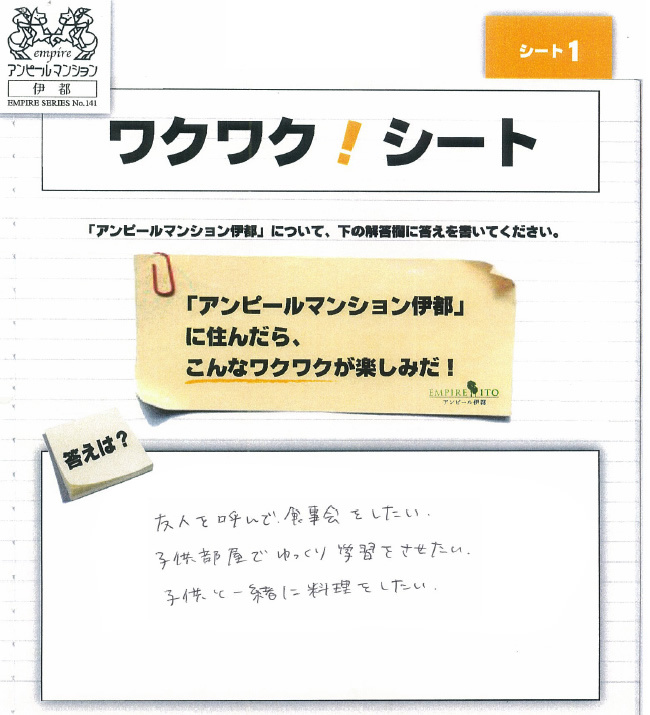 empire
アンピールマンション
伊都
EMPIRE SERIES No.141
シート1
ワクワク!シート
「アンピールマンション伊都」について、下の解答欄に答えを書いてください。
「アンピールマンション伊都」
に住んだら、
こんなワクワクが楽しみだ!
EMPIRE ITO
アンピール伊都
答えは?
友人を呼んで、食事会をしたい.
子供部屋でゆっくり学習をさせたい.
子供と一緒に料理をしたい.